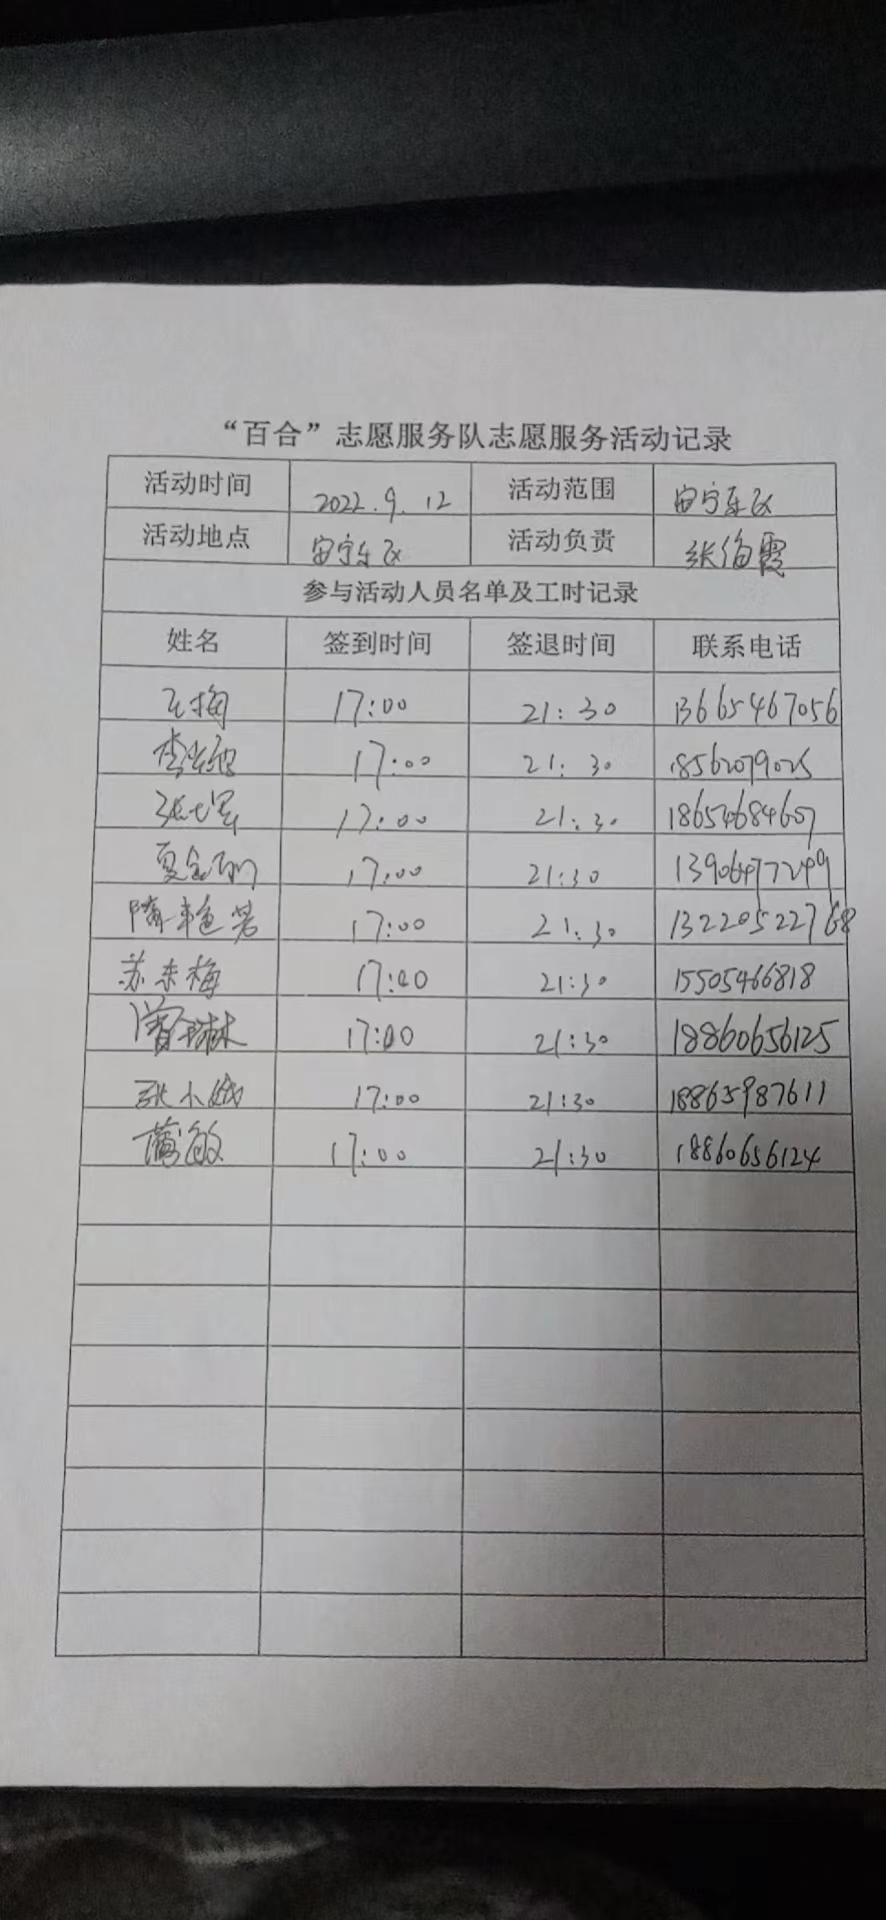 “百合”志愿服务队志愿服务活动记录
活动时间 2022.9.12 活动范围 安宁东区
活动地点 安宁东区 活动负责 张俊霞
参与活动人员名单及工时记录
姓名 签到时间 签退时间 联系电话
王梅 17:00 21:30 13665467056
17:00 21:30 18562079025
17:00 21:30 18654684607
17:00 21:30 13906477249
17:00 21:30 13220522768
苏来梅 17:00 21:30 15505466818
17:00 21:30 18860656125
张小娥 17:00 21:30 18865987611
蒲敏 17:00 21:30 18860656124